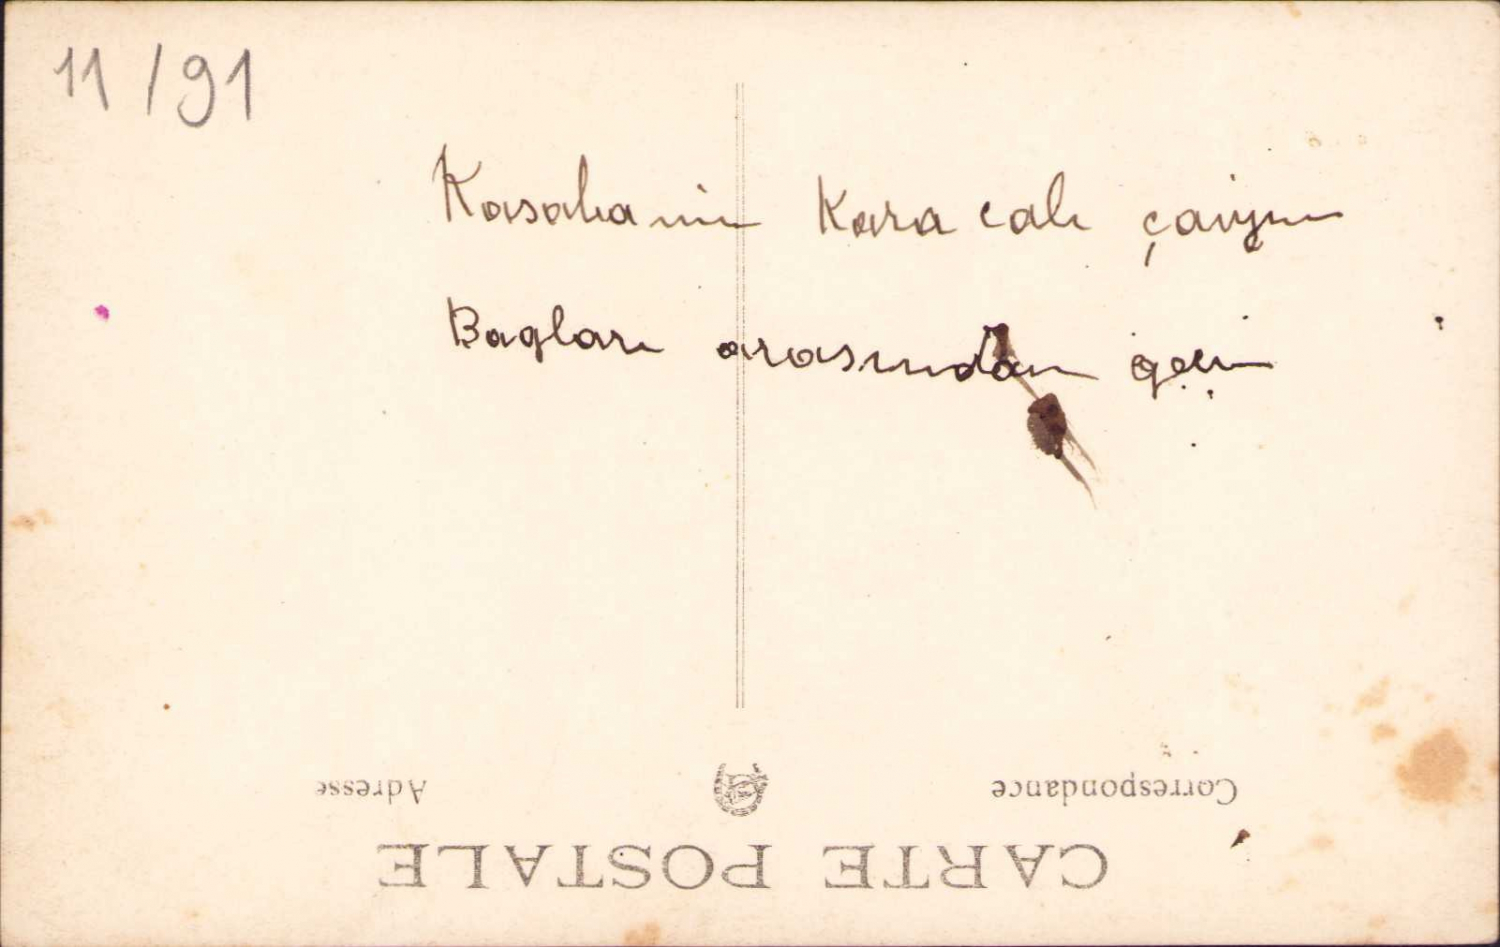 11/91
Kasabanın Kara calı çayın
Bagları arasından
Correspondance
Adresse
CARTE POSTALE